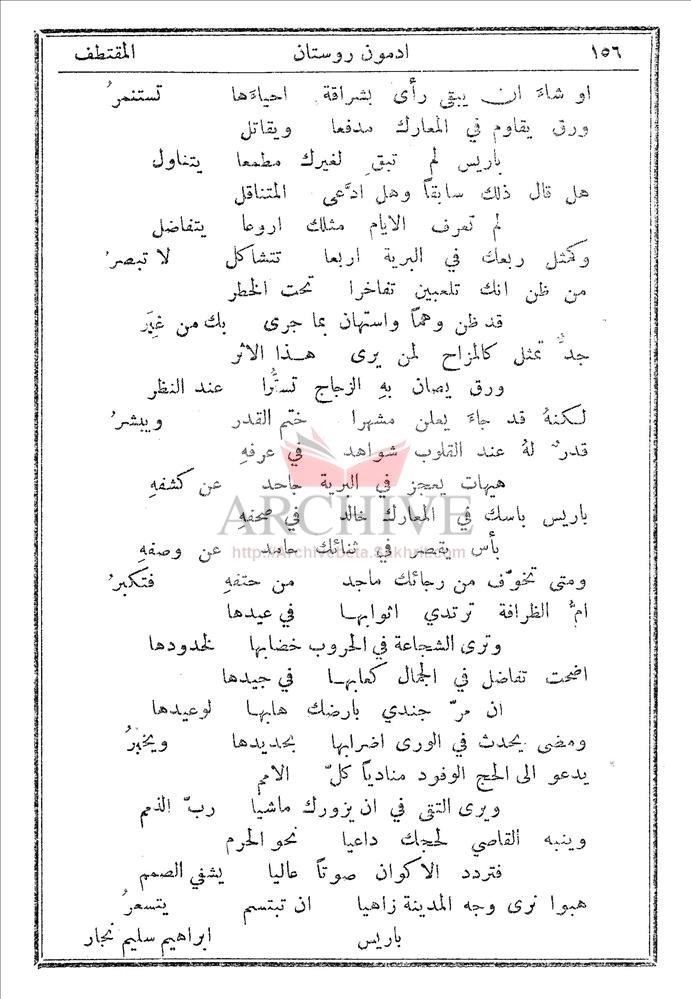 ١٥٦ ادمون روستان المقتطف
او شاءَ ان يبقى رأى بشراقة احياءَها تستنمرُ
ورق يقاوم في المعارك مدفعا ويقاتل
باريس لم تبقِ لغيرك مطمعا يتناول
هل قال ذلك سابقاً وهل ادَّعى المتناقل
لم تعرف الايام مثلك اروعا يتفاضل
وكمثل ربعك في البرية اربعا تتشاكل لا تبصرُ
من ظن انك تلعبين تفاخرا تحت الخطر
قد ظن وهمًا واستهان بما جرى بك من غِيَر
جدٌّ تمثل كالمزاح لمن يرى هـذا الاثر
ورق يصان بهِ الزجاج تستُّرا عند النظر
لكنهُ قد جاءَ يعلن مشهرا ختم القدر ويبشرُ
قدرٌ لهُ عند القلوب شواهد في عرفهِ
هيهات يعجز في البرية جاحد عن كشفهِ
باريس باسك في المعارك خالد في صحفهِ
ARCHIVE
بأس يقصر في ثنائك حامد عن وصفهِ
http://Archivebeta.Sakhrit.com
ومتى تخوّف من رجائك ماجد من حتفهِ فتكبرُ
امُّ الظرافة ترتدي اثوابهـا في عيدها
وترى الشجاعة في الحروب خضابها لخدودها
اضحت تفاضل في الجمال كعابهـا في جيدها
ان مرّ جندي بارضك هابهـا لوعيدها
ومضى يحدث في الورى اضرابها بحديدها ويخبرُ
يدعو الى الحج الوفود منادياً كلّ الامم
ويرى التقى في ان يزورك ماشيا ربّ الذمم
وينبه القاصي لحجك داعيا نحو الحرم
فتردد الاكوان صوتاً عاليا يشفي الصمم
هبوا نرى وجه المدينة زاهيا ان تبتسم يتسعرُ
باريس ابراهيم سليم نجار